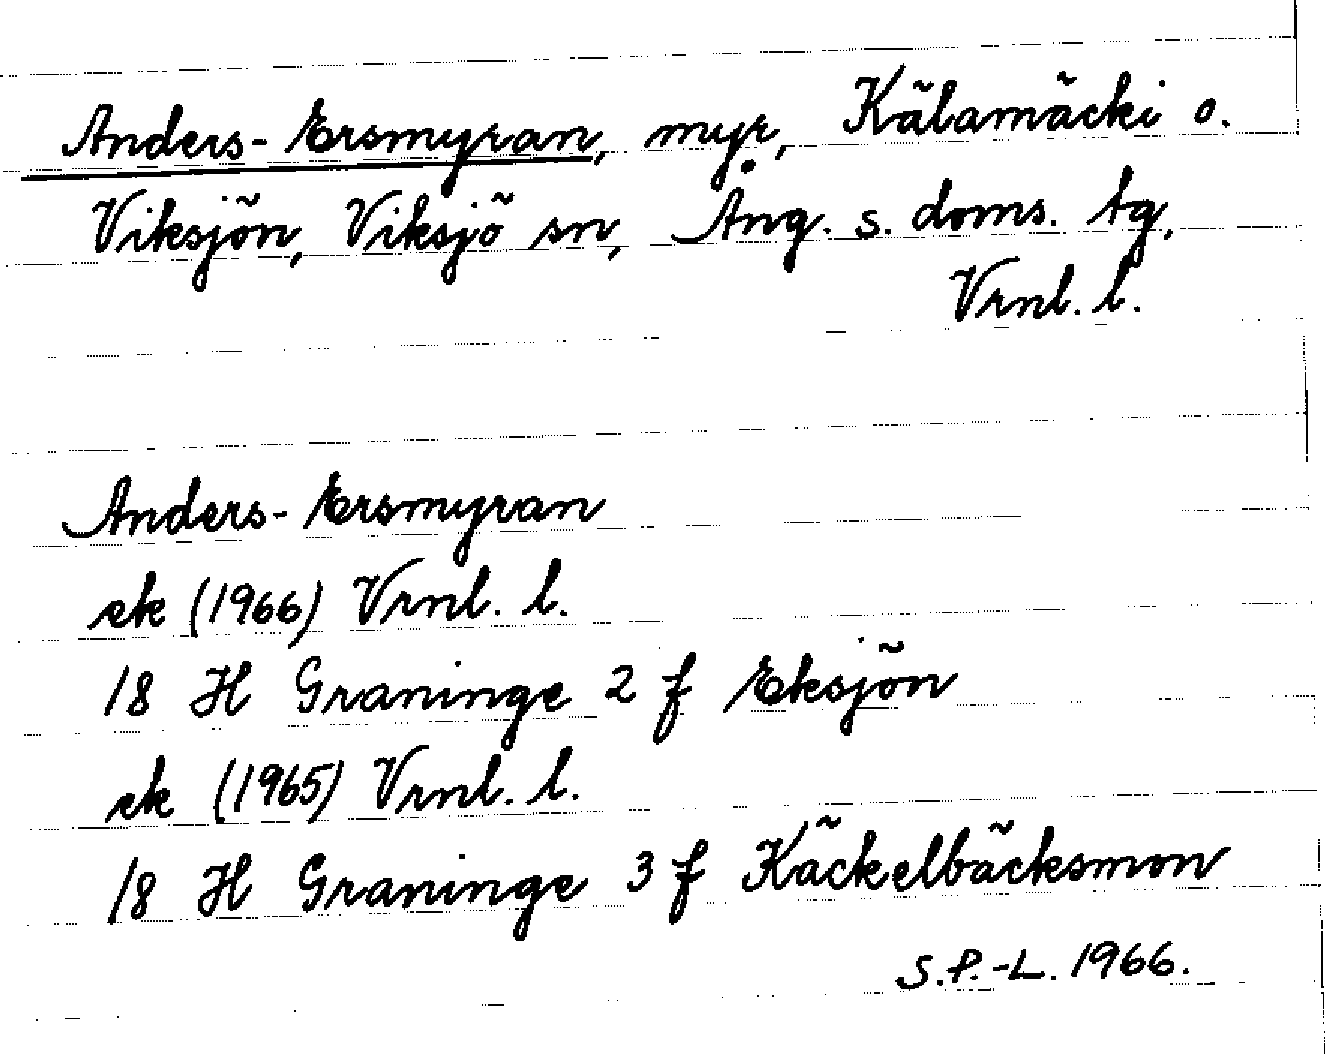 Anders-Ersmyran, myr, Kälamäcki o.
Viksjön, Viksjö sn, Ång. s. doms. tg,
Vrnl. l.
Anders-Ersmyran
ek (1966) Vrnl. l.
18 H Graninge 2 f Eksjön
ek (1965) Vrnl. l.
18 H Graninge 3 f Käckelbäcksmon
S.P.-L. 1966.